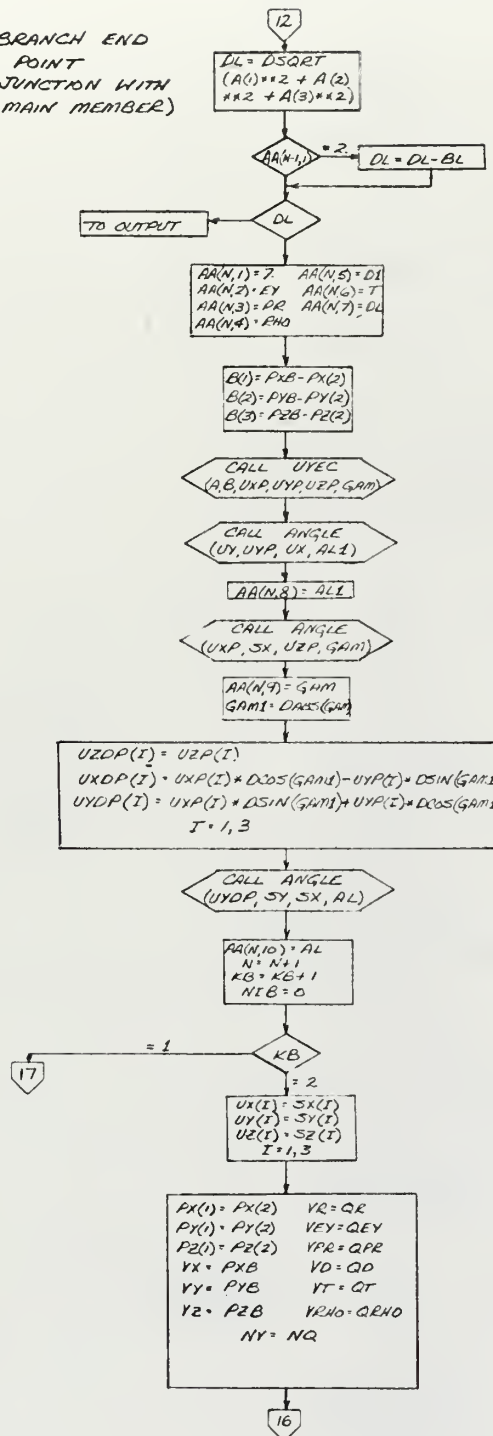 BRANCH END
POINT
JUNCTION WITH
MAIN MEMBER)
12
DL = DSQRT
(A(1)**2 + A(2)
**2 + A(3)**2)
AA(N-1,1)
= 2.
DL = DL-BL
DL
TO OUTPUT
AA(N,1) = 7. AA(N,5) = D1
AA(N,2) = EY AA(N,6) = T
AA(N,3) = PR AA(N,7) = DL
AA(N,4) = RHO
B(1) = PXB-PX(2)
B(2) = PYB-PY(2)
B(3) = PZB-PZ(2)
CALL UVEC
(A,B,UXP,UYP,UZP,GAM)
CALL ANGLE
(UY,UYP,UX,AL1)
AA(N,8) = AL1
CALL ANGLE
(UXP,SX,UZP,GAM)
AA(N,9) = GAM
GAM1 = DACOS(GAM
UZDP(I) = UZP(I)
UXDP(I) = UXP(I)*DCOS(GAM1)-UYP(I)*DSIN(GAM1
UYDP(I) = UXP(I)*DSIN(GAM1)+UYP(I)*DCOS(GAM1
I = 1,3
CALL ANGLE
(UYDP,SY,SX,AL)
AA(N,10) = AL
N = N+1
KB = KB+1
NIB = 0
= 1
KB
17
= 2
UX(I) = SX(I)
UY(I) = SY(I)
UZ(I) = SZ(I)
I = 1,3
PX(1) = PX(2) VR = QR
PY(1) = PY(2) VEY = QEY
PZ(1) = PZ(2) VPR = QPR
VX = PXB VD = QD
VY = PYB VT = QT
VZ = PZB VRHO = QRHO
NV = NQ
16